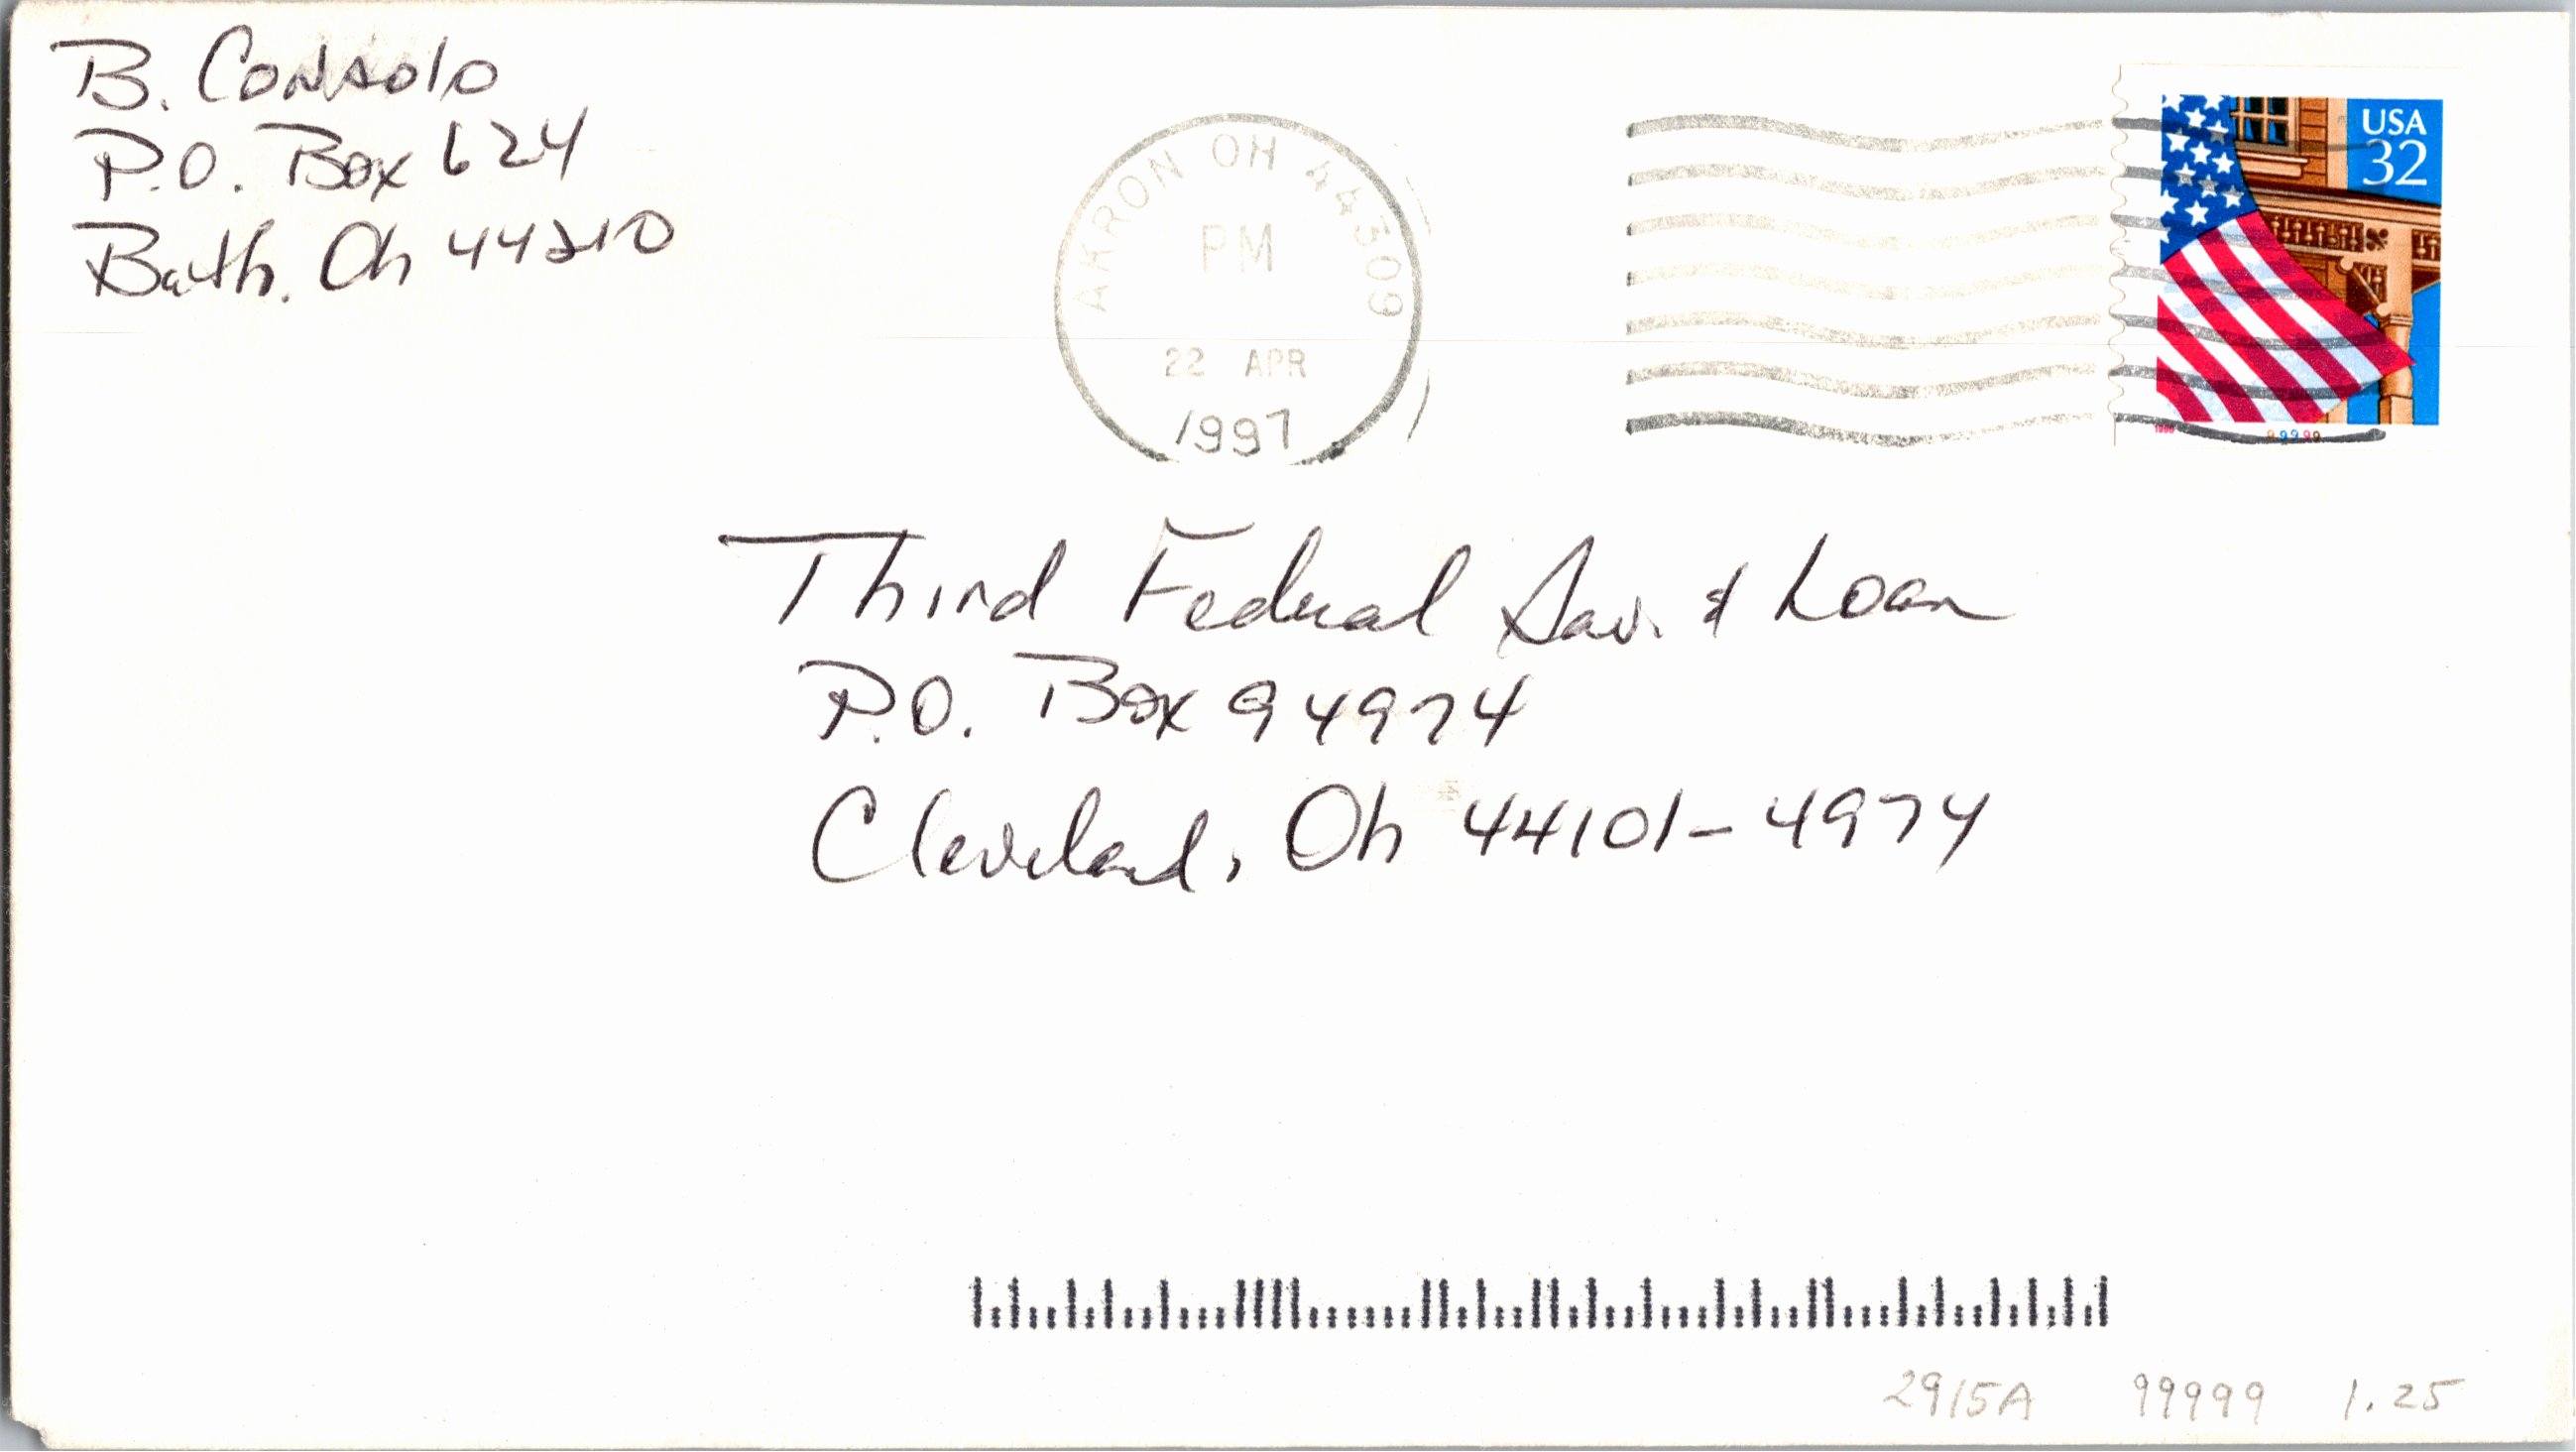 B. Consolo
P.O. Box 624
Bath. Oh 44210
AKRON OH 44309
PM
22 APR
1997
USA
32
1996
99999
Third Federal Sav. & Loan
P.O. Box 94974
Cleveland, Oh 44101-4974
2915A 99999 1.25